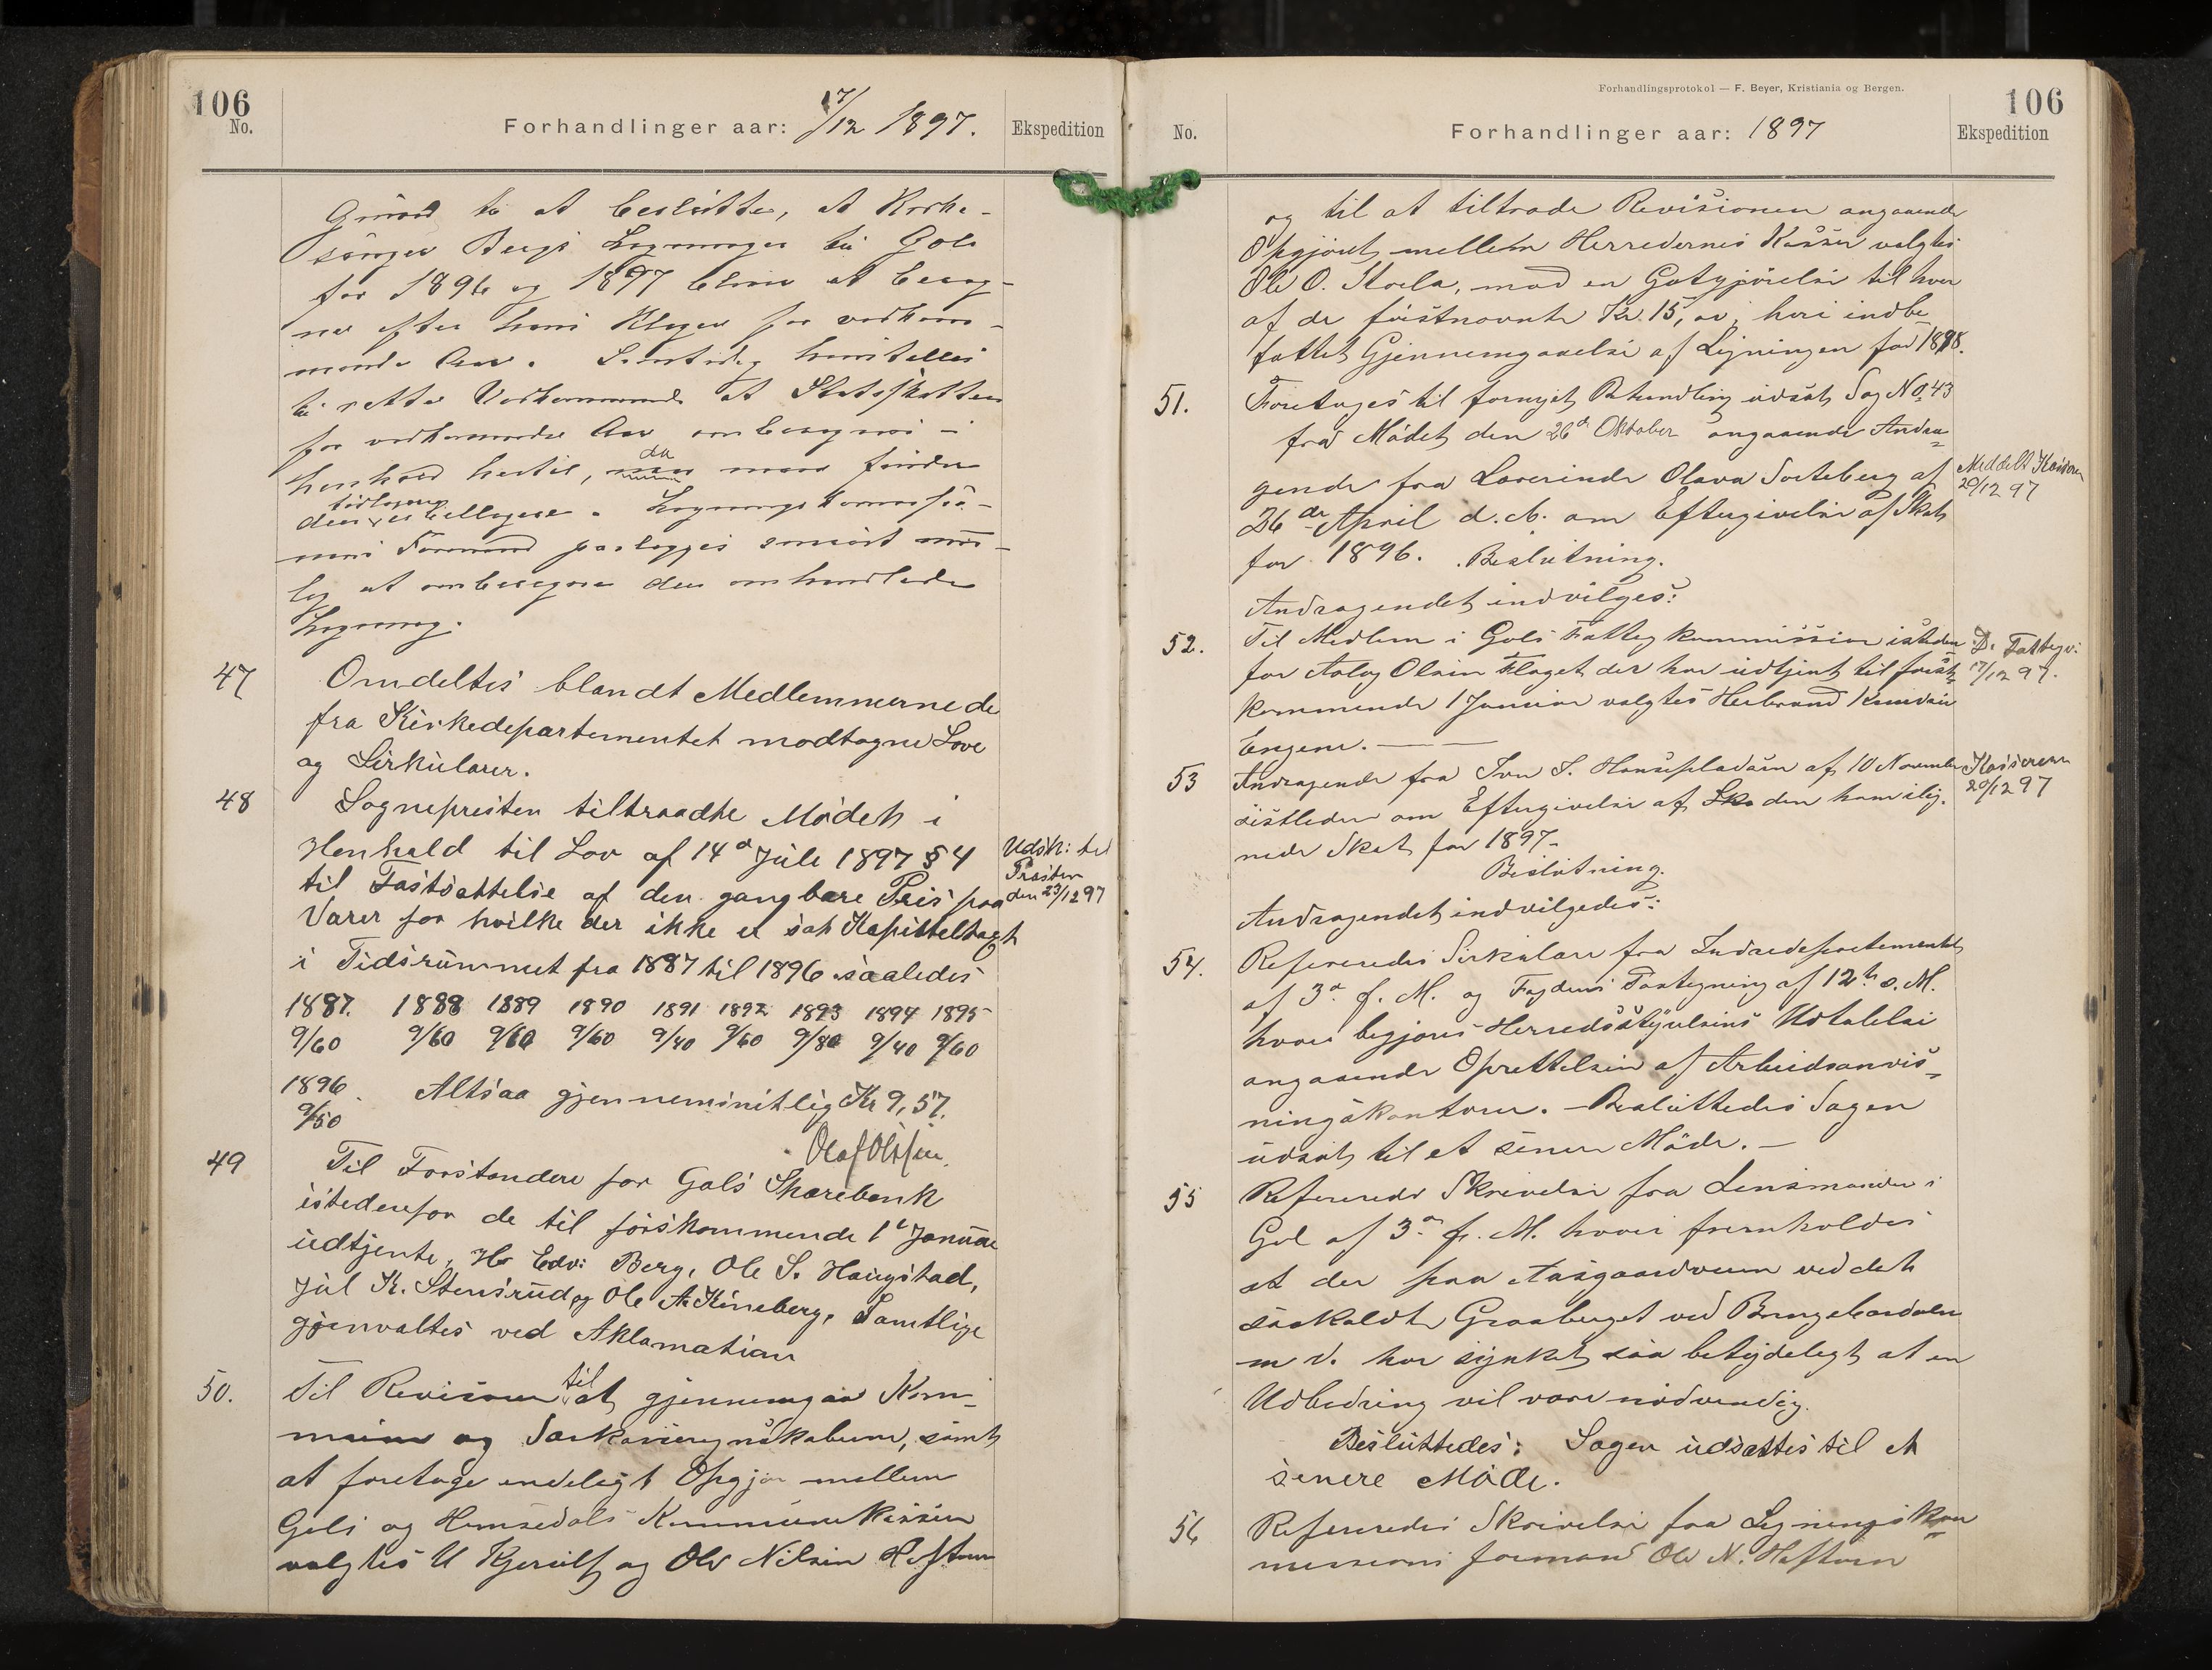 106
No.
Forhandlinger aar: 17/12 1897.
Ekspedition
Grund til at beslutte, at Kirke-
sanger Bergs Ligninger til Gols
for 1896 og 1897 bliver at bereg-
nes efter hans Klager for vedkom-
mende Aar. Samtidig henstilles
til rette Vedkommende at Statsskatten
for vedkommende Aar omberegnes i
henhold hertil, da man finder
den Lignings kommis-
sions Formand paalægges snarest mu-
lig at omberegne den omhandlede
Ligning.
47 Omdeltes blandt Medlemmerne de
fra Kirkedepartementet modtagne Love
og Sirkulærer.
48 Sognepresten tiltraadte Mødet i
Henhold til Lov af 14d Juli 1897 § 4
til Fastsættelse af den gangbare Pris paa
Varer for hvilke der ikke er sat Kapitteltagst
i Tidsrummet fra 1887 til 1896 saaledes
Udsk: tel
Præsten
den 23/12 97
1887. 1888 1889 1890 1891 1892 1893 1894 1895
9/60 9/60 9/60 9/60 9/40 9/60 9/80 9/40 9/60
1896. Altsaa gjennemsnitlig Kr 9,57.
9/50
Olaf Olssen.
49 Til Forstandere for Gols Sparebank
istedenfor de til førskommende 1e Januar
udtjente, Hr Edv: Berg, Ole S. Haugstad,
Jul K. Stensrud og Ole A. Kinneberg, Samtlige
gjenvaltes ved Aklamation
50. Til Revisorer til at gjennemgaa Kom-
mune og Særkasseregnskaberne, samt
at foretage endeligt Opgjør mellem
Gols og Hemsedals Kommunekasser
valgtes U Kjerulf og Ole Nilsen Heftum
Forhandlingsprotokol — F. Beyer, Kristiania og Bergen.
106
No.
Forhandlinger aar: 1897
Ekspedition
og til at tiltræde Revisionen angaaende
Opgjøret mellem Herredernes Kasser valgtes
Ole O. Storla, mod en Godtgjørelse til hver
af de førstnævnte Kr. 15, heri indbe
fattet Gjennemgaaelse af Ligningen for 1898.
51. Foretages til fornyet Behandling udsat Sag No 43
fra Mødet den 26d Oktober angaaende Andra-
gende fra Lærerinde Olava Sorteberg af
26de April d. A. om Eftergivelse af Skat
for 1896. Beslutning.
Meddelt Kasseren
20/12 97
Andragendet indvilges:
52. Til Medlem i Gols Fattigkommission isteden
for Aslag Olsen Flaget der har udtjent til først
kommende 1 Januar valgtes Herbrand Knudsen
Engene. — —
D. Fattigv:
17/12 97.
53 Andragende fra Iver S. Hansepladsen af 10 November
sistleden om Eftergivelse af den ham ilig.
nede Skat for 1897-
Kasseren
20/12 97
Beslutning.
Andragendet indvilgedes:
54. Refereredes Sirkulære fra Indredepartementet
af 3d f. M. og Fogdens Paategning af 12te s. M.
hvori begjæres Herredsstyrelsens Udtalelse
angaaende Oprettelsen af Arbeidsanvis-
ningskontorer. - Besluttedes Sagen
udsat til et senere Møde. —
55 Refereredes Skrivelse fra Lensmanden i
Gol af 3d f. M. hvori fremholdes
at der paa Aasgaardveien ved det
saakaldte Graaberget ved
m v. har synket saa betydelegt at en
Udbedring vil være nødvendig.
Besluttedes: Sagen udsættes til et
senere Møde.
56 Refereredes Skrivelse fra Ligningskom
missions formand Ole N. Heftum